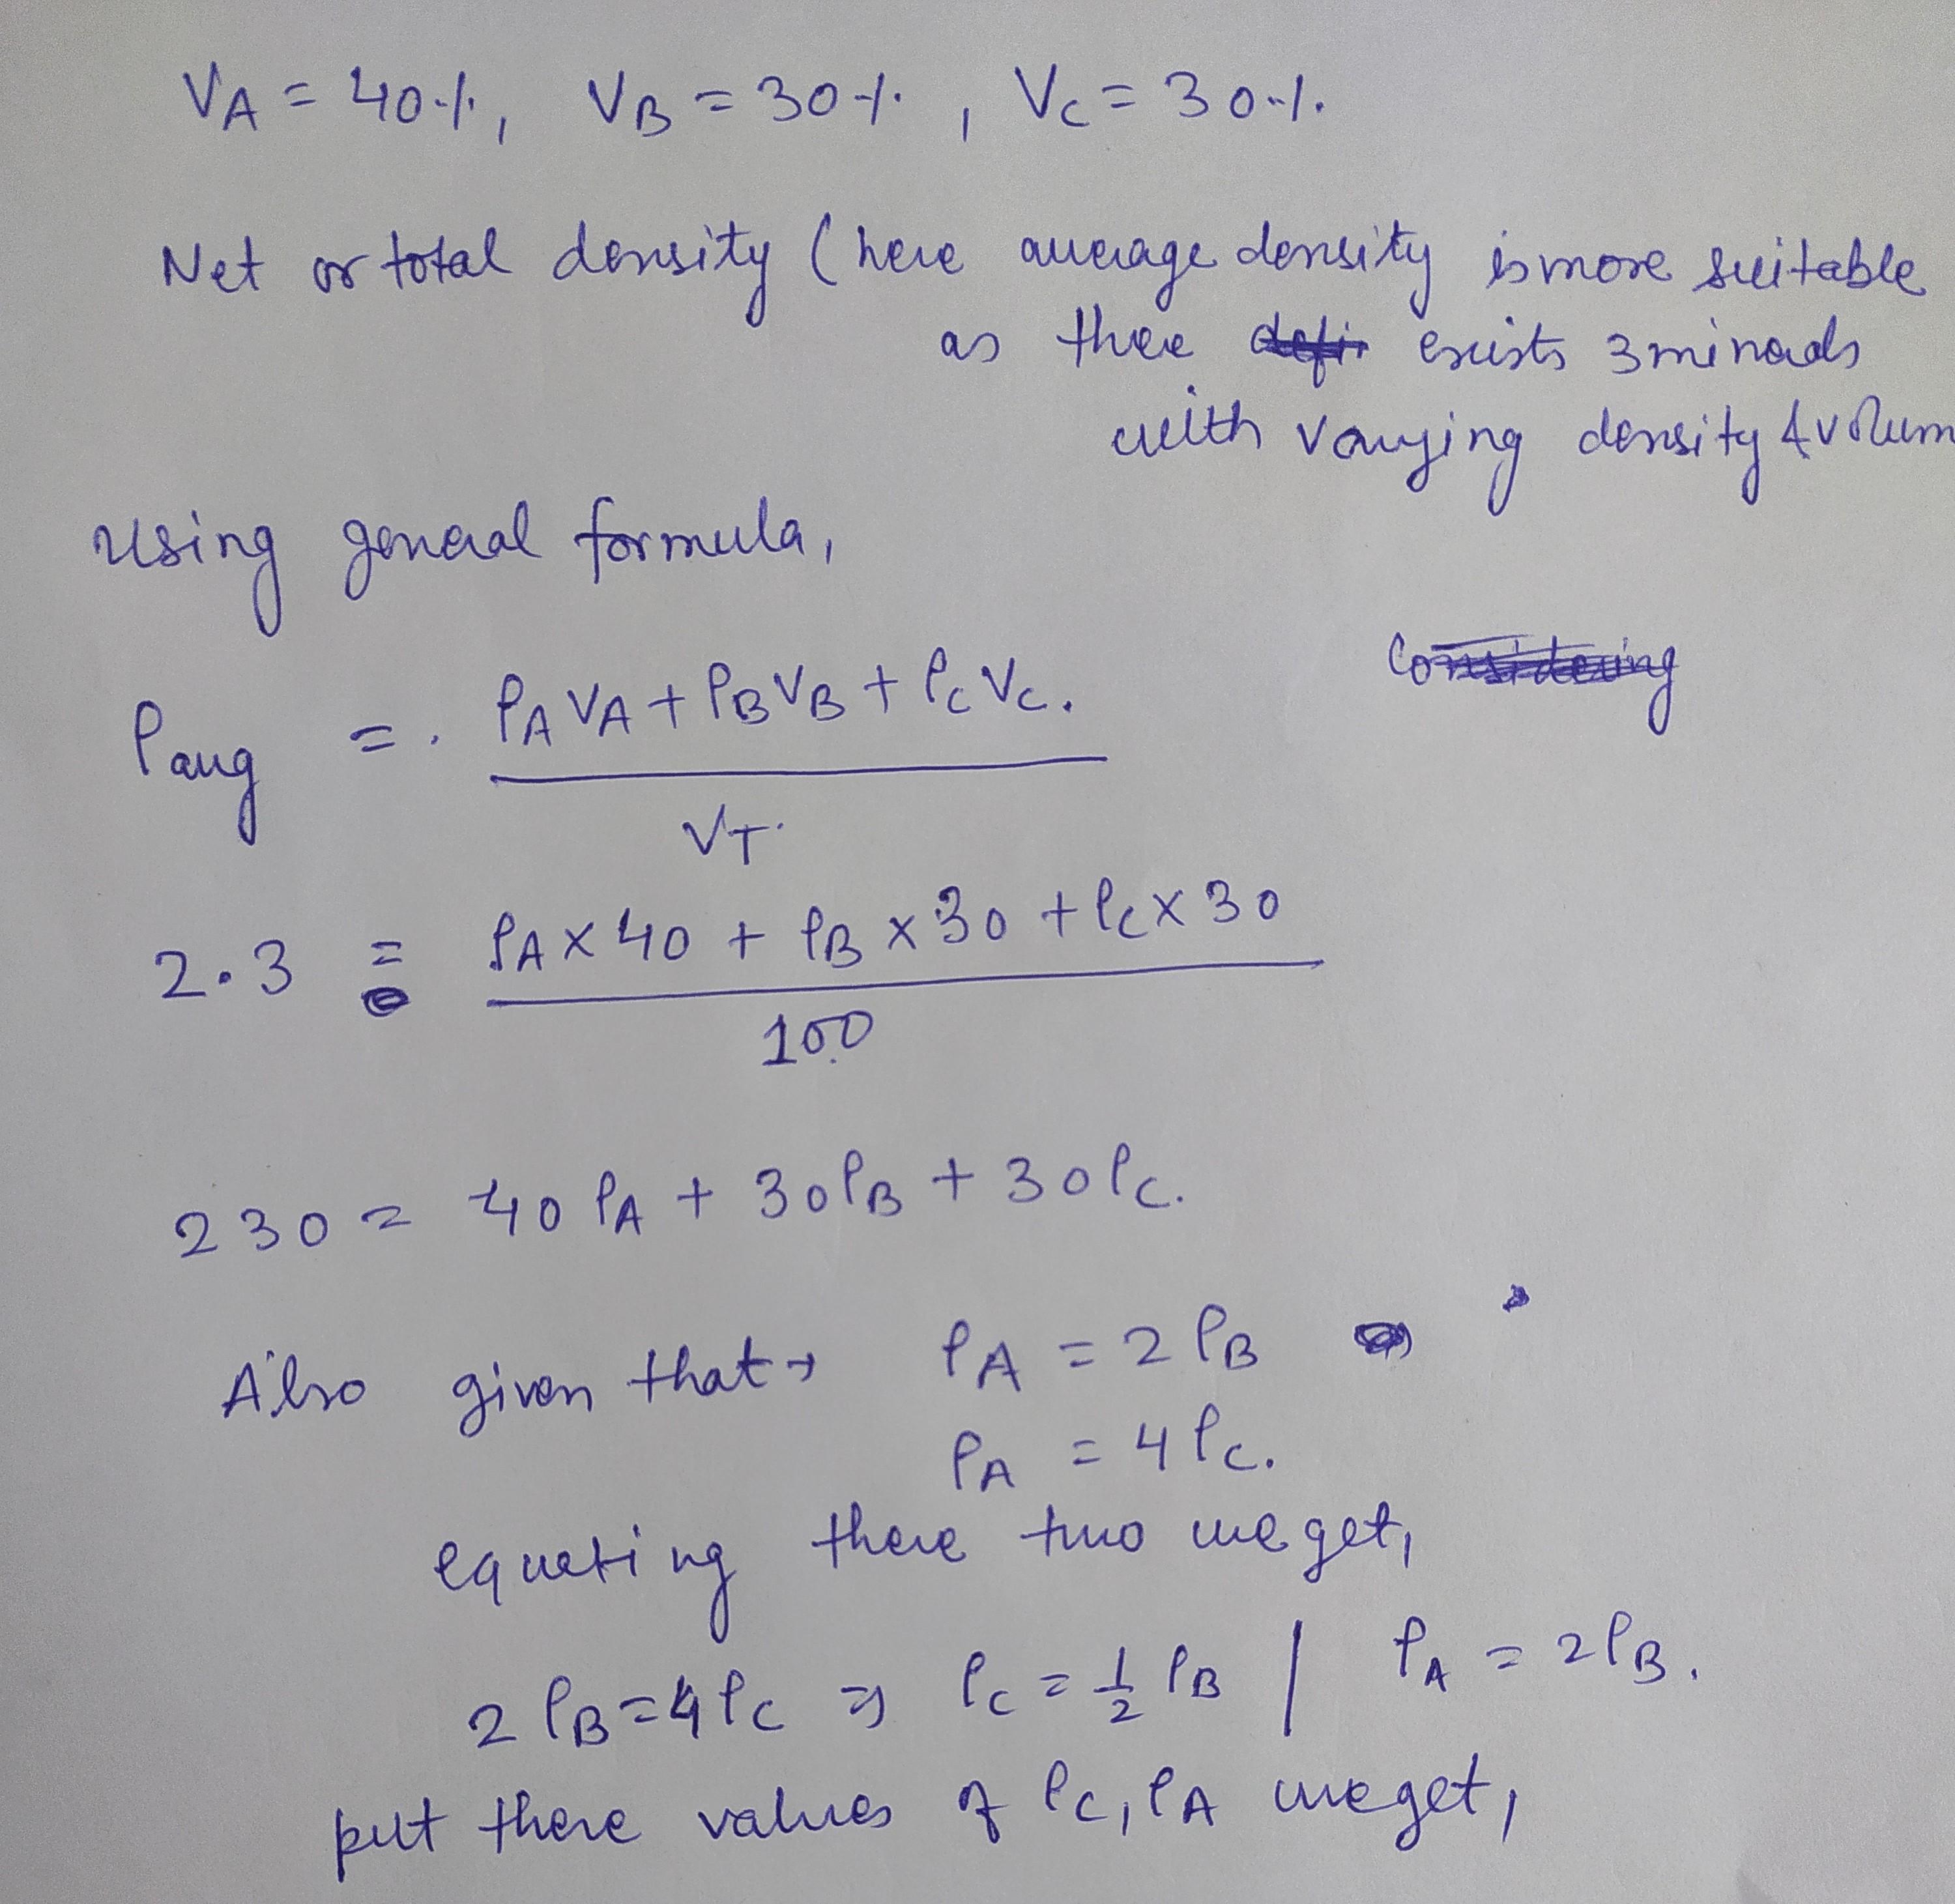 VA = 40%, VB = 30%, VC = 30%
Net or total density (here average density is more suitable
as there exists 3 minerals
with varying density & volum
Using general formula,
ρavg = ρA VA + ρB VB + ρC VC.
VT
2.3 = ρA × 40 + ρB × 30 + ρC × 30
100
230 = 40 ρA + 30 ρB + 30 ρC.
Also given that → ρA = 2 ρB
ρA = 4 ρC.
equating these two we get,
2 ρB = 4 ρC ⇒ ρC = 1/2 ρB | ρA = 2 ρB.
put these values of ρC, ρA we get,